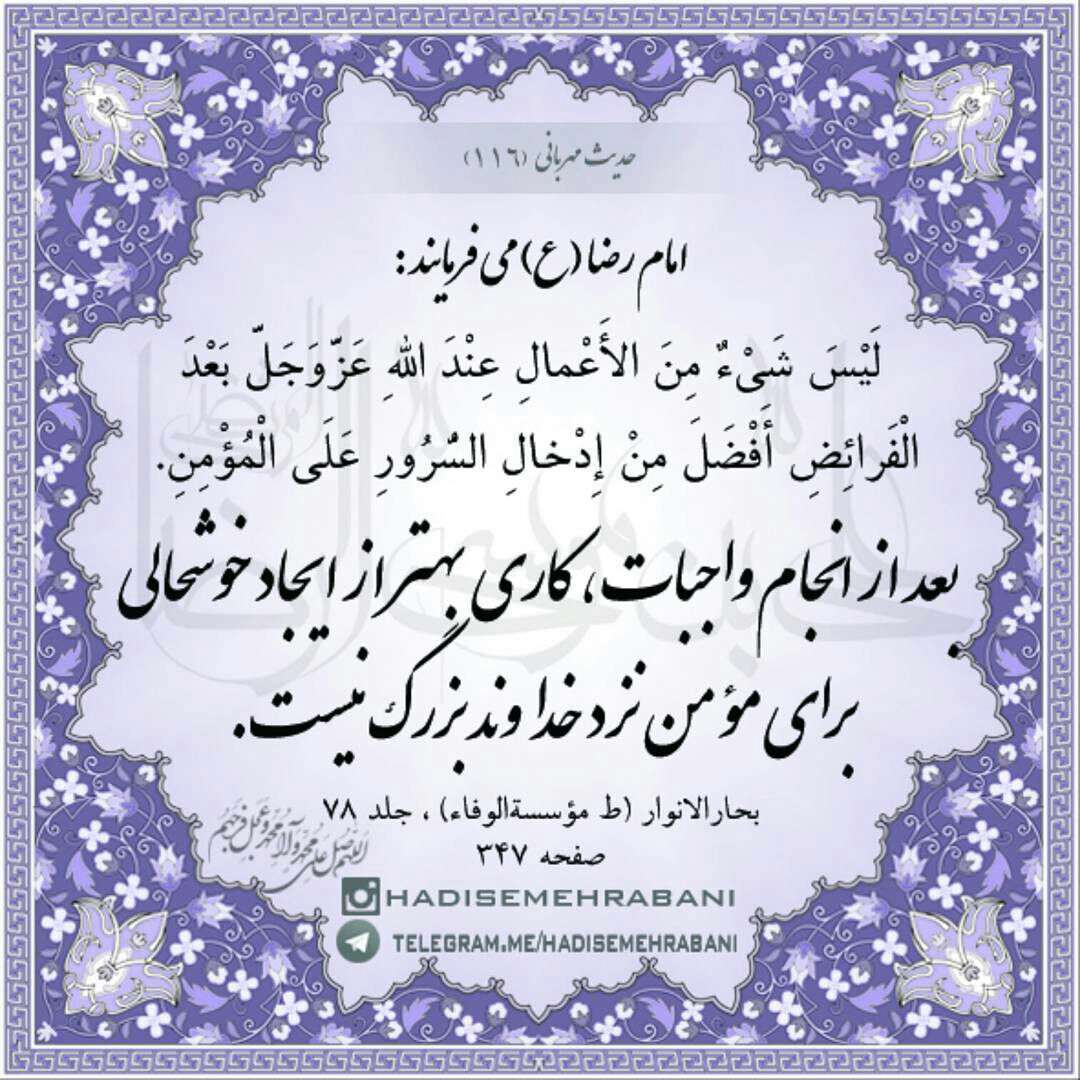 حدیث مهربانی (۱۱۶)
امام رضا (ع) می فرمایند:
لَيْسَ شَىْءٌ مِنَ الأَعْمالِ عِنْدَ اللهِ عَزَّوَجَلّ بَعْدَ
الْفَرائِضِ أَفْضَلَ مِنْ إِدْخالِ السُّرُورِ عَلَى الْمُؤْمِنِ.
بعد از انجام واجبات، کاری بهتر از ایجاد خوشحالی
برای مؤمن نزد خداوند بزرگ نیست.
بحارالانوار (ط مؤسسةالوفاء) ، جلد ۷۸
صفحه ۳۴۷
اللهم صل علی محمد وآل محمد وعجل فرجهم
HADISEMEHRABANI
TELEGRAM.ME/HADISEMEHRABANI